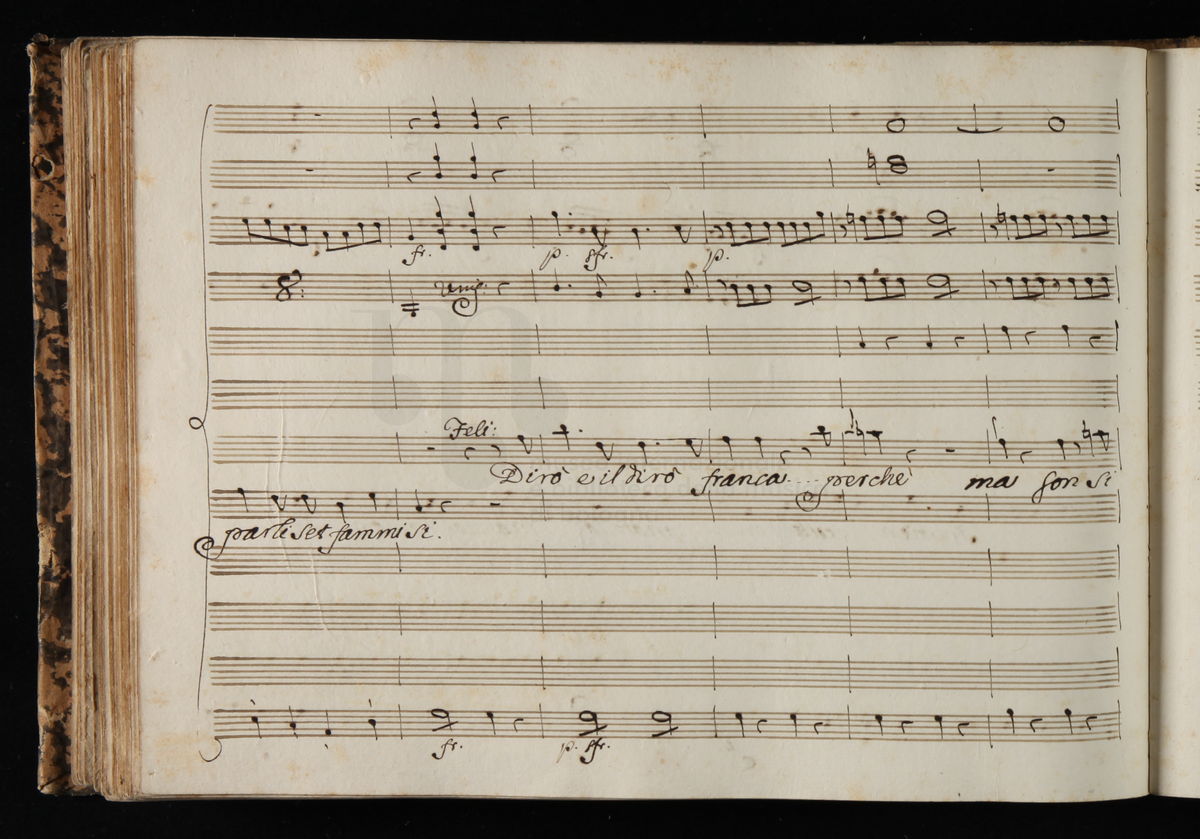 fr.
p. sfr.
p.
Unis:
Feli:
Dirò e il dirò franca perchè ma son si
parli set fammi si.
fr.
p. sfr.